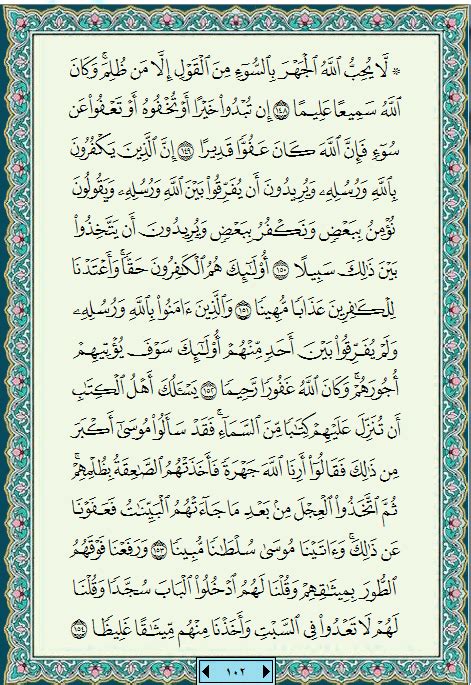 ۞ لَّا يُحِبُّ ٱللَّهُ ٱلْجَهْرَ بِٱلسُّوٓءِ مِنَ ٱلْقَوْلِ إِلَّا مَن ظُلِمَ ۚ وَكَانَ
ٱللَّهُ سَمِيعًا عَلِيمًا ﴿١٤٨﴾ إِن تُبْدُوا۟ خَيْرًا أَوْ تُخْفُوهُ أَوْ تَعْفُوا۟ عَن
سُوٓءٍ فَإِنَّ ٱللَّهَ كَانَ عَفُوًّا قَدِيرًا ﴿١٤٩﴾ إِنَّ ٱلَّذِينَ يَكْفُرُونَ
بِٱللَّهِ وَرُسُلِهِۦ وَيُرِيدُونَ أَن يُفَرِّقُوا۟ بَيْنَ ٱللَّهِ وَرُسُلِهِۦ وَيَقُولُونَ
نُؤْمِنُ بِبَعْضٍ وَنَكْفُرُ بِبَعْضٍ وَيُرِيدُونَ أَن يَتَّخِذُوا۟
بَيْنَ ذَٰلِكَ سَبِيلًا ﴿١٥٠﴾ أُو۟لَـٰٓئِكَ هُمُ ٱلْكَـٰفِرُونَ حَقًّا ۚ وَأَعْتَدْنَا
لِلْكَـٰفِرِينَ عَذَابًا مُّهِينًا ﴿١٥١﴾ وَٱلَّذِينَ ءَامَنُوا۟ بِٱللَّهِ وَرُسُلِهِۦ
وَلَمْ يُفَرِّقُوا۟ بَيْنَ أَحَدٍ مِّنْهُمْ أُو۟لَـٰٓئِكَ سَوْفَ يُؤْتِيهِمْ
أُجُورَهُمْ ۗ وَكَانَ ٱللَّهُ غَفُورًا رَّحِيمًا ﴿١٥٢﴾ يَسْـَٔلُكَ أَهْلُ ٱلْكِتَـٰبِ
أَن تُنَزِّلَ عَلَيْهِمْ كِتَـٰبًا مِّنَ ٱلسَّمَآءِ ۚ فَقَدْ سَأَلُوا۟ مُوسَىٰٓ أَكْبَرَ
مِن ذَٰلِكَ فَقَالُوٓا۟ أَرِنَا ٱللَّهَ جَهْرَةً فَأَخَذَتْهُمُ ٱلصَّـٰعِقَةُ بِظُلْمِهِمْ ۚ
ثُمَّ ٱتَّخَذُوا۟ ٱلْعِجْلَ مِنۢ بَعْدِ مَا جَآءَتْهُمُ ٱلْبَيِّنَـٰتُ فَعَفَوْنَا
عَن ذَٰلِكَ ۚ وَءَاتَيْنَا مُوسَىٰ سُلْطَـٰنًا مُّبِينًا ﴿١٥٣﴾ وَرَفَعْنَا فَوْقَهُمُ
ٱلطُّورَ بِمِيثَـٰقِهِمْ وَقُلْنَا لَهُمُ ٱدْخُلُوا۟ ٱلْبَابَ سُجَّدًا وَقُلْنَا
لَهُمْ لَا تَعْدُوا۟ فِى ٱلسَّبْتِ وَأَخَذْنَا مِنْهُم مِّيثَـٰقًا غَلِيظًا ﴿١٥٤﴾
١٠٢